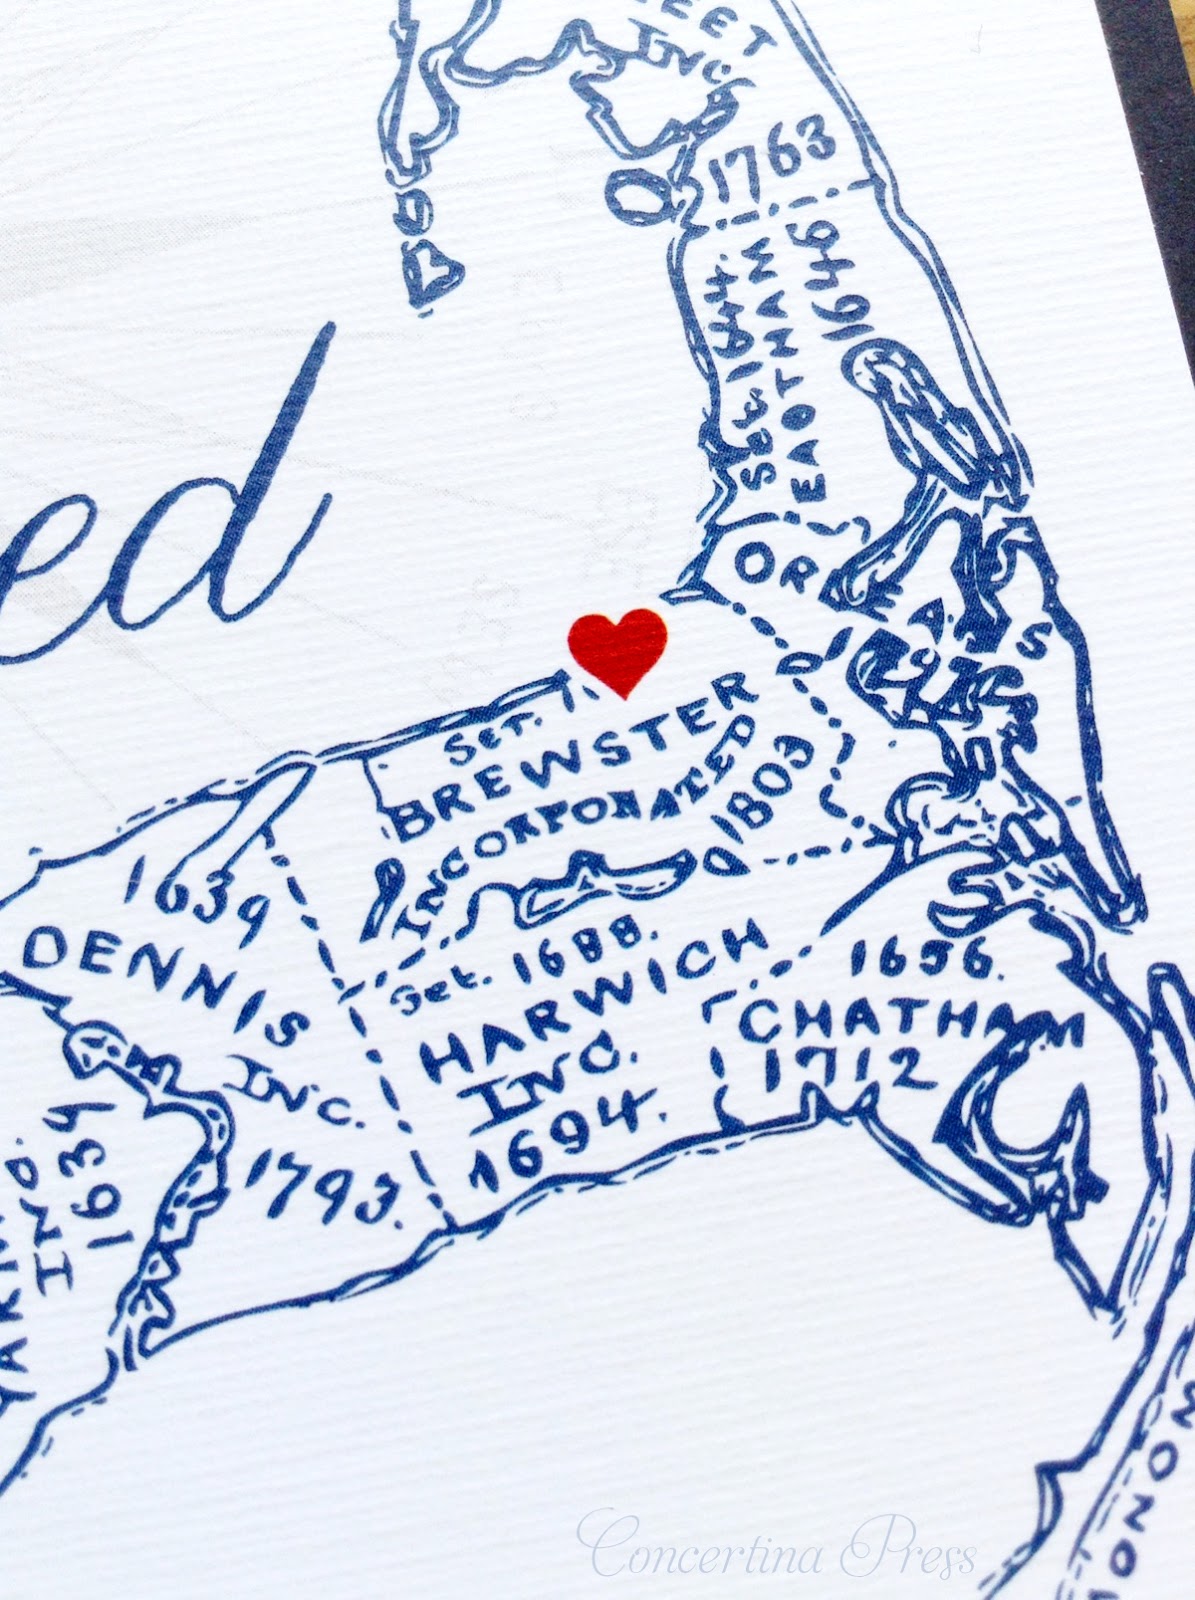 INC.
1763
1646
EASTHAM
Set. 1644.
ORLEANS
ed
SET.
BREWSTER
INCORPORATED
1803
1639
DENNIS
INC.
1793.
Set. 1688.
HARWICH
INC.
1694.
1656.
CHATHAM
1712
INC.
1639
Concertina Press